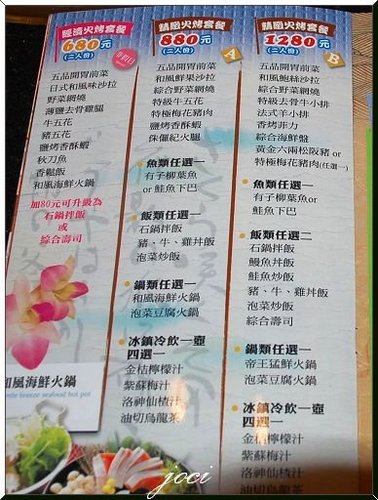 經濟火烤套餐
680元
(二人份)
五品開胃前菜
日式和風味沙拉
野菜網燒
薄鹽去骨雞腿
牛五花
豬五花
鹽烤香酥蝦
秋刀魚
香鬆飯
和風海鮮火鍋
加80元可升級為
石鍋拌飯
或
綜合壽司
和風海鮮火鍋
精緻火烤套餐
880元
(二人份)
A
五品開胃前菜
和風鮮果沙拉
綜合野菜網燒
特級牛五花
特極梅花豬肉
鹽烤香酥蝦
侏儸紀火腿
魚類任選一
有子柳葉魚
or 鮭魚下巴
飯類任選一
石鍋拌飯
豬、牛、雞丼飯
泡菜炒飯
鍋類任選一
和風海鮮火鍋
泡菜豆腐火鍋
冰鎮冷飲一壺
四選一
金桔檸檬汁
紫蘇梅汁
洛神仙楂汁
油切烏龍茶
精緻火烤套餐
1280元
(二人份)
B
五品開胃前菜
和風鮑絲沙拉
綜合野菜網燒
特級去骨牛小排
法式羊小排
香烤菲力
綜合海鮮盤
黃金六兩松阪豬 or
特極梅花豬肉(任選一)
魚類任選一
有子柳葉魚or
鮭魚下巴
飯類任選二
石鍋拌飯
鰻魚丼飯
鮭魚炒飯
豬、牛、雞丼飯
泡菜炒飯
綜合壽司
鍋類任選一
帝王猛鮮火鍋
泡菜豆腐火鍋
冰鎮冷飲一壺
四選一
金桔檸檬汁
紫蘇梅汁
洛神仙楂汁
油切烏龍茶
joci